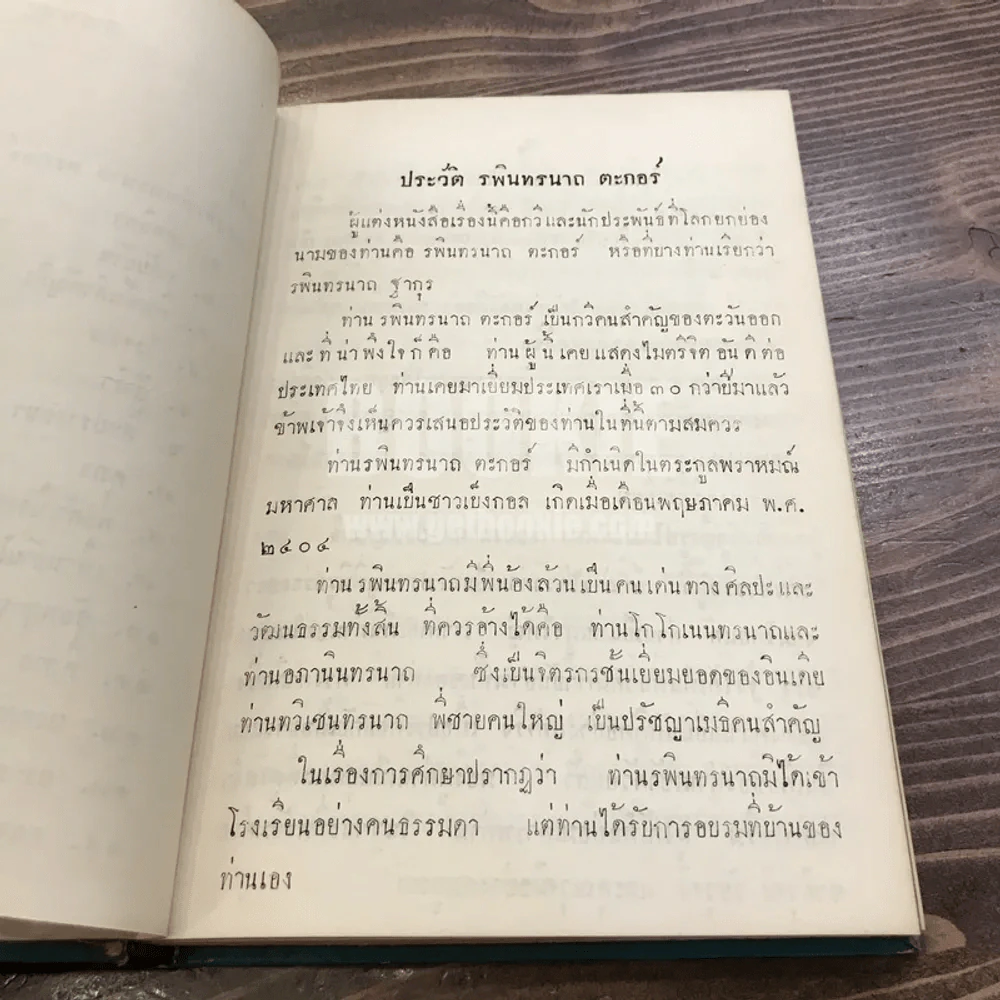 ประวัติ รพินทรนาถ ตะกอร์
ผู้แต่งหนังสือเรื่องนี้คือกวีและนักประพันธ์ที่โลกยกย่อง
นามของท่านคือ รพินทรนาถ ตะกอร์ หรือที่บางท่านเรียกว่า
รพินทรนาถ ฐากุร
ท่านรพินทรนาถ ตะกอร์ เป็นกวีคนสำคัญของตะวันออก
และที่น่าพึงใจก็คือ ท่านผู้นี้เคยแสดงไมตรีจิตอันดีต่อ
ประเทศไทย ท่านเคยมาเยี่ยมประเทศเราเมื่อ ๓๐ กว่าปีมาแล้ว
ข้าพเจ้าจึงเห็นควรเสนอประวัติของท่านในที่นี้ตามสมควร
ท่านรพินทรนาถ ตะกอร์ มีกำเนิดในตระกูลพราหมณ์
มหาศาล ท่านเป็นชาวเบ็งกอล เกิดเมื่อเดือนพฤษภาคม พ.ศ.
๒๔๐๔
ท่านรพินทรนาถมีพี่น้องล้วนเป็นคนเด่นทางศิลปะและ
วัฒนธรรมทั้งสิ้น ที่ควรอ้างได้คือ ท่านโกโกเนนทรนาถและ
ท่านอภานินทรนาถ ซึ่งเป็นจิตรกรชั้นเยี่ยมยอดของอินเดีย
ท่านทวิเชนทรนาถ พี่ชายคนใหญ่ เป็นปรัชญาเมธีคนสำคัญ
ในเรื่องการศึกษาปรากฏว่า ท่านรพินทรนาถมิได้เข้า
โรงเรียนอย่างคนธรรมดา แต่ท่านได้รับการอบรมที่บ้านของ
ท่านเอง